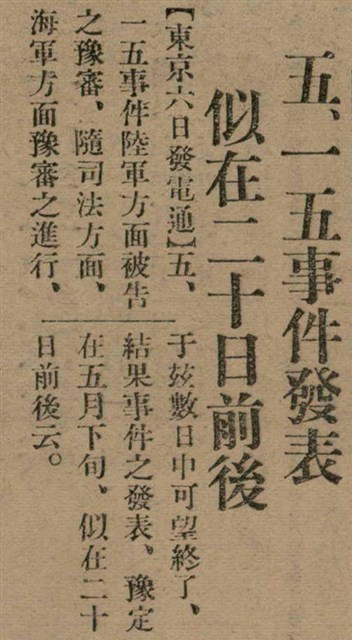 五、一五事件發表
似在二十日前後
【東京六日發電通】五、
一五事件陸軍方面被告
之豫審、隨司法方面、
海軍方面豫審之進行、
于玆數日中可望終了、
結果事件之發表、豫定
在五月下旬、似在二十
日前後云。